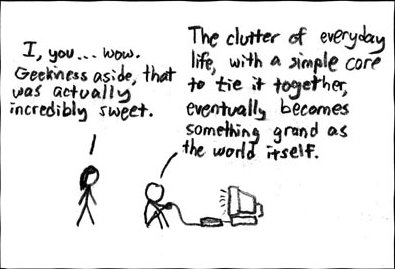 I, you... wow.
Geekiness aside, that
was actually
incredibly sweet.
The clutter of everyday
life, with a simple core
to tie it together,
eventually becomes
something grand as
the world itself.